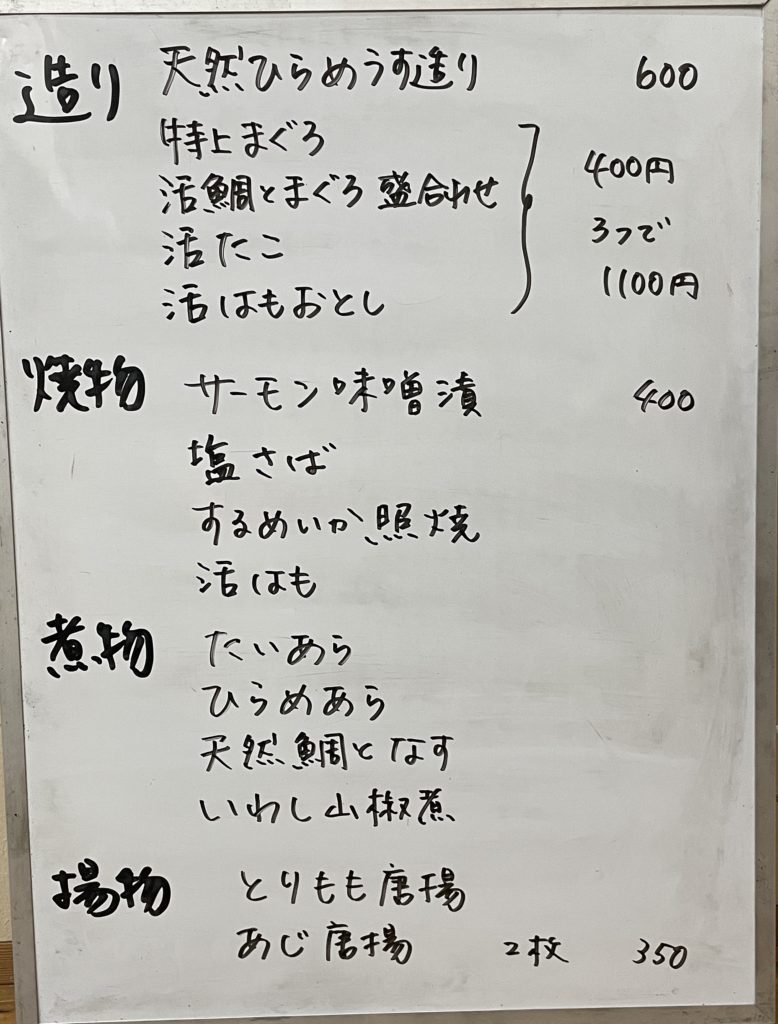 造り 天然ひらめうす造り 600
特上まぐろ
活鯛とまぐろ 盛合わせ 400円
活たこ 3つで
活はもおとし 1100円
焼物 サーモン味噌漬 400
塩さば
するめいか照焼
活はも
煮物 たいあら
ひらめあら
天然鯛となす
いわし山椒煮
揚物 とりもも唐揚
あじ唐揚 2枚 350